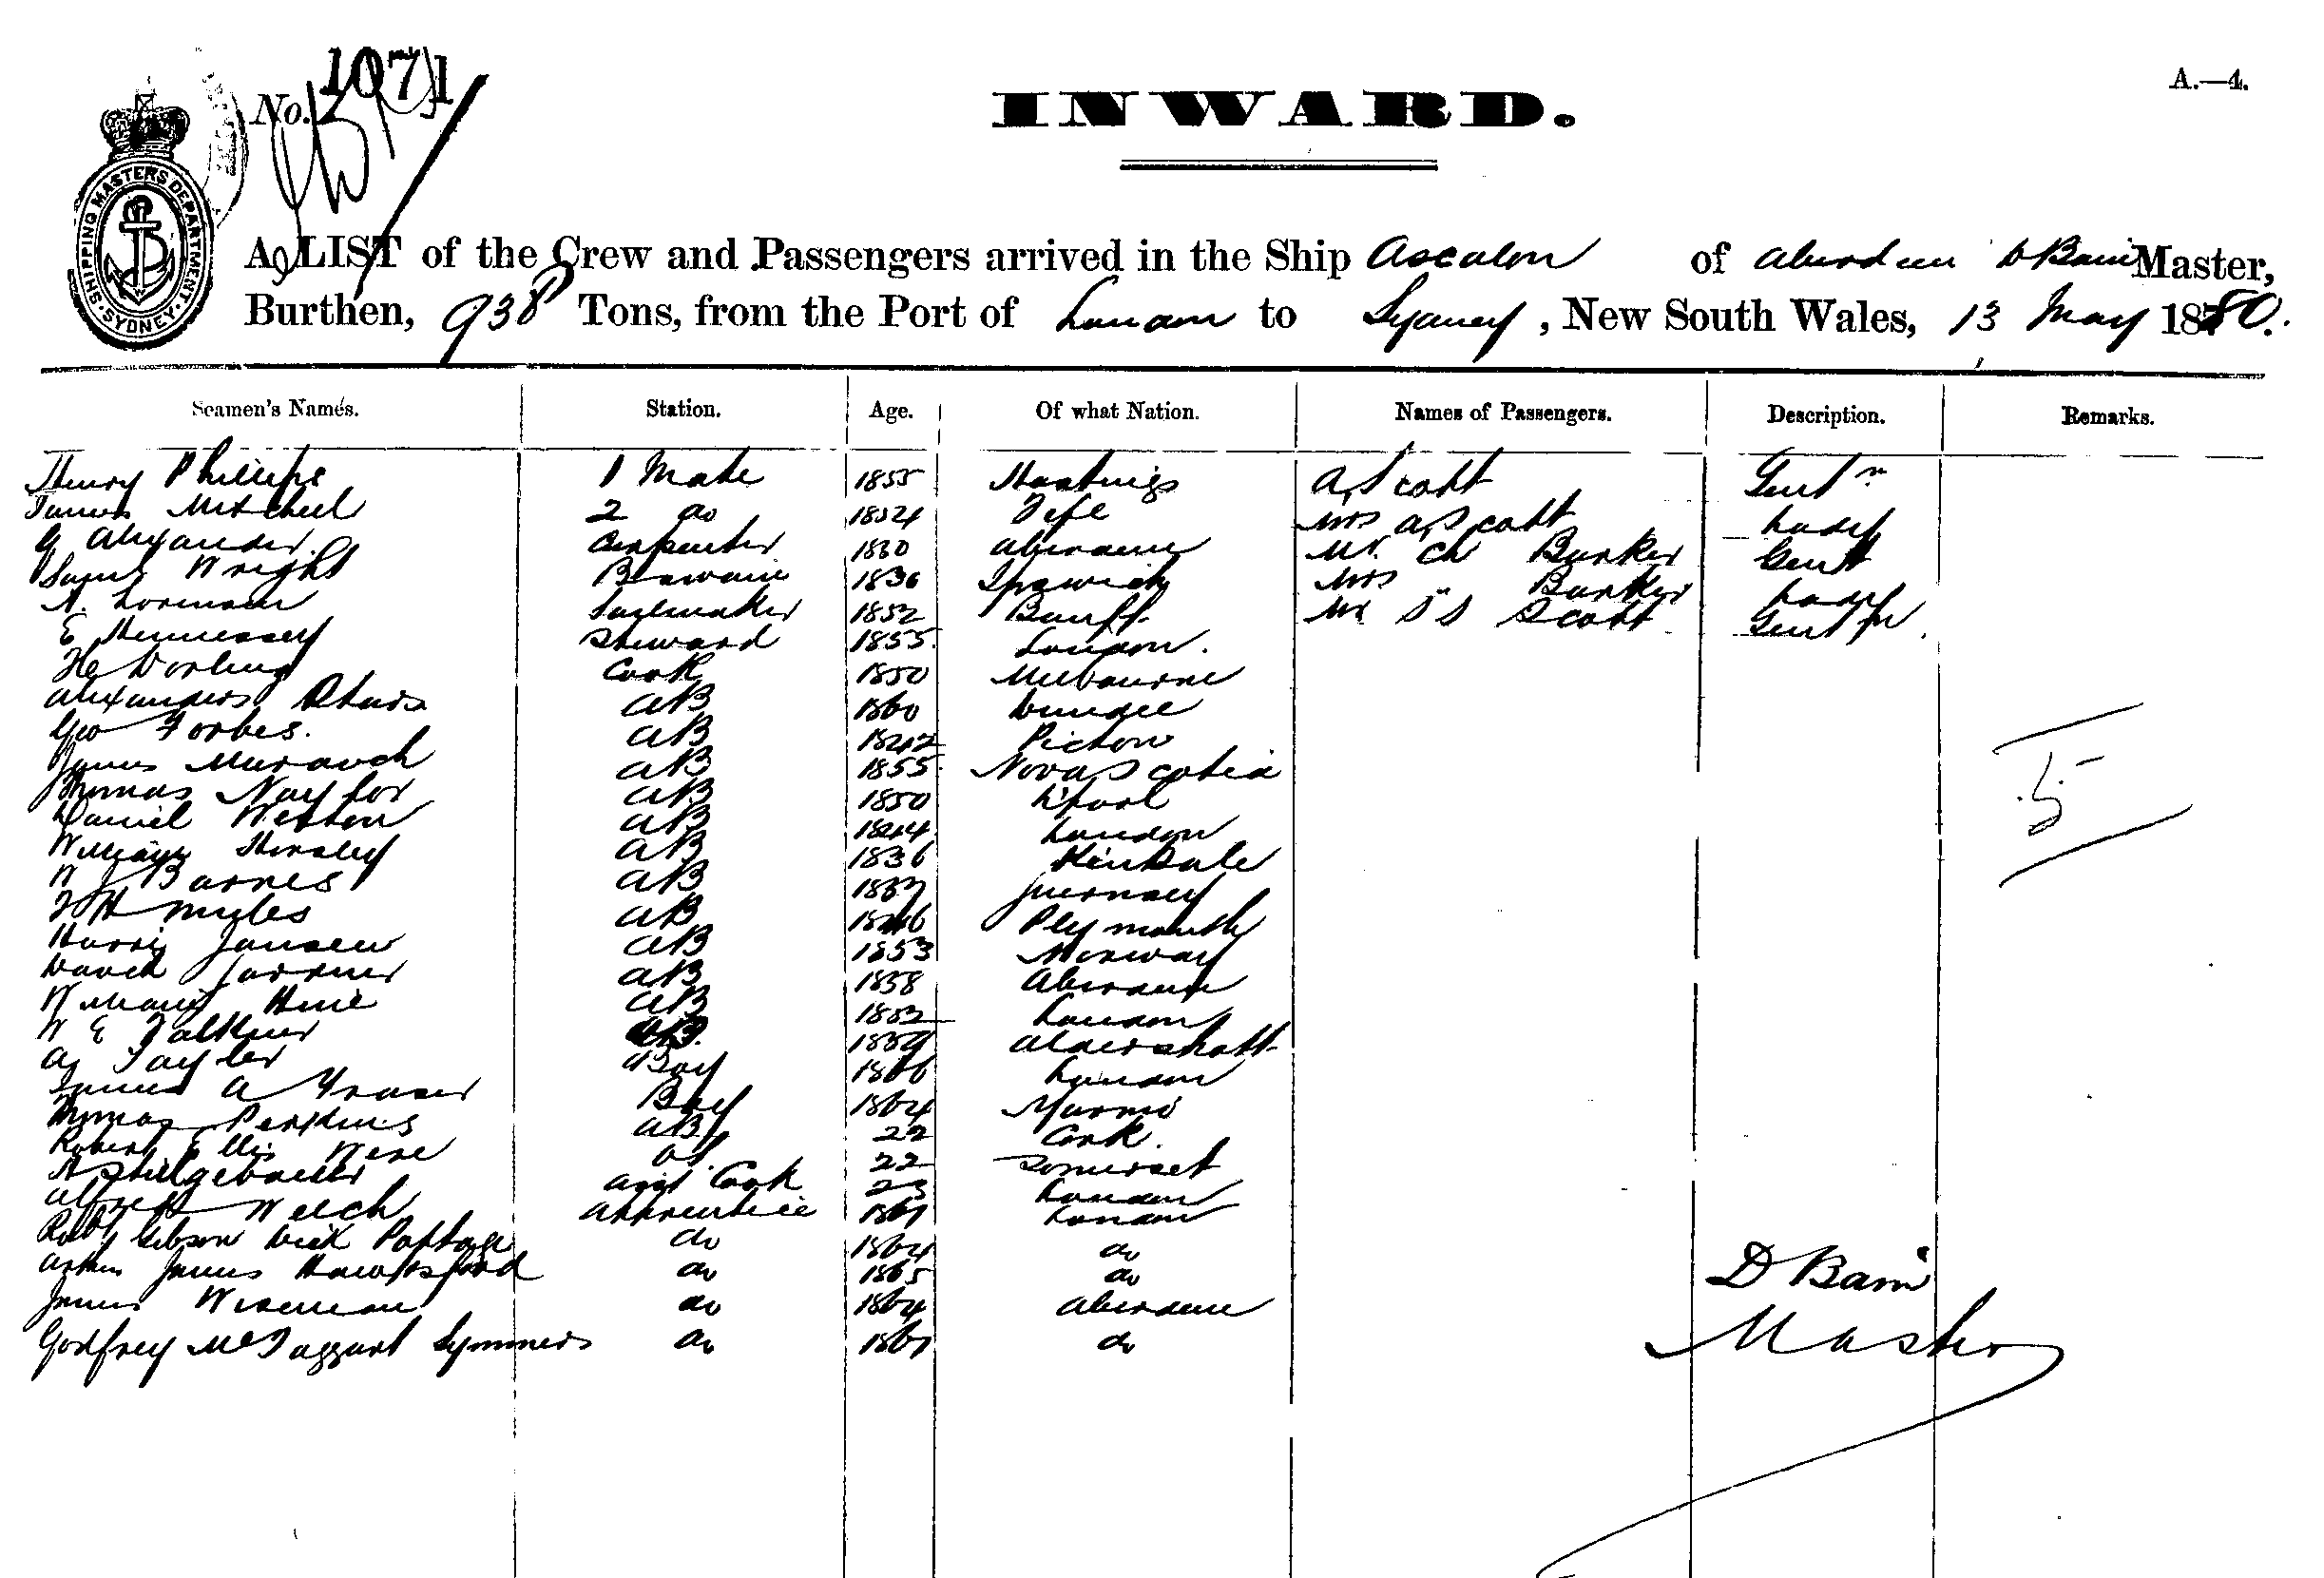 A.—4.
No. 1071
INWARD.
SHIPPING MASTERS DEPARTMENT. SYDNEY.
A LIST of the Crew and Passengers arrived in the Ship Ascalon of Aberdeen D Bain Master,
Burthen, 938 Tons, from the Port of London to Sydney, New South Wales, 13 May 1880.
Seamen's Names. Station. Age. Of what Nation. Names of Passengers. Description. Remarks.
Henry Phillips 1 Mate 1855 Hastings A Scott Gentn
James Mitchell 2 do 1852 Fife Mrs A Scott Lady
G Alexander Carpenter 1860 Aberdeen Mr. Ch Bunker Gent
Saml Wright Boswain 1836 Ipswich Mrs " Bunker Lady
A. Lorimer Sailmaker 1852 Banff Mr S S Scott Gent
E Hennessey Steward 1855 London.
Dorling Cook 1850 Melbourne
Alexander AB 1860 Dundee
Geo Forbes. AB 1842 Pictou
James Murdoch AB 1855 Nova Scotia
Thomas Naylor AB 1850 L'pool
Daniel Weston AB 1844 London
William Horsley AB 1836 Kinsale
W J Barnes AB Guernsey
Myles AB Plymouth
Harris Jansen AB 1853 Norway
David AB 1858 Aberdeen
William Hine AB 1853 London
W E Falkner AB 1859 Aldershott
A Tayler Boy 1866 London
James A Fraser Boy 1864
Thomas Perkins AB 22 Cork.
Robert Ellis Were OS 22 Somerset
Asst Cook 23 London
Alfred Welch Apprentice 1861 London
Robt Gibson Dick do 1864 do
Arthur James Hawksford do 1865 do
James Wiseman do 1864 Aberdeen
Godfrey McTaggart Symmers do 1861 do
5
D Bain
Master